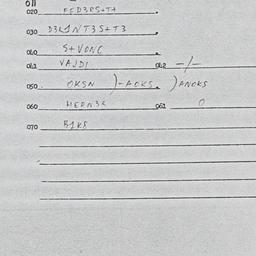 011
020 FED3RS+T+
030 D3L1NT3S+T3
040 S+VONC
041 VAJDI 042 -/-
050 OKSN )-AOKS. )ANOKS
060 HERN3K 061 0
070 B1KS